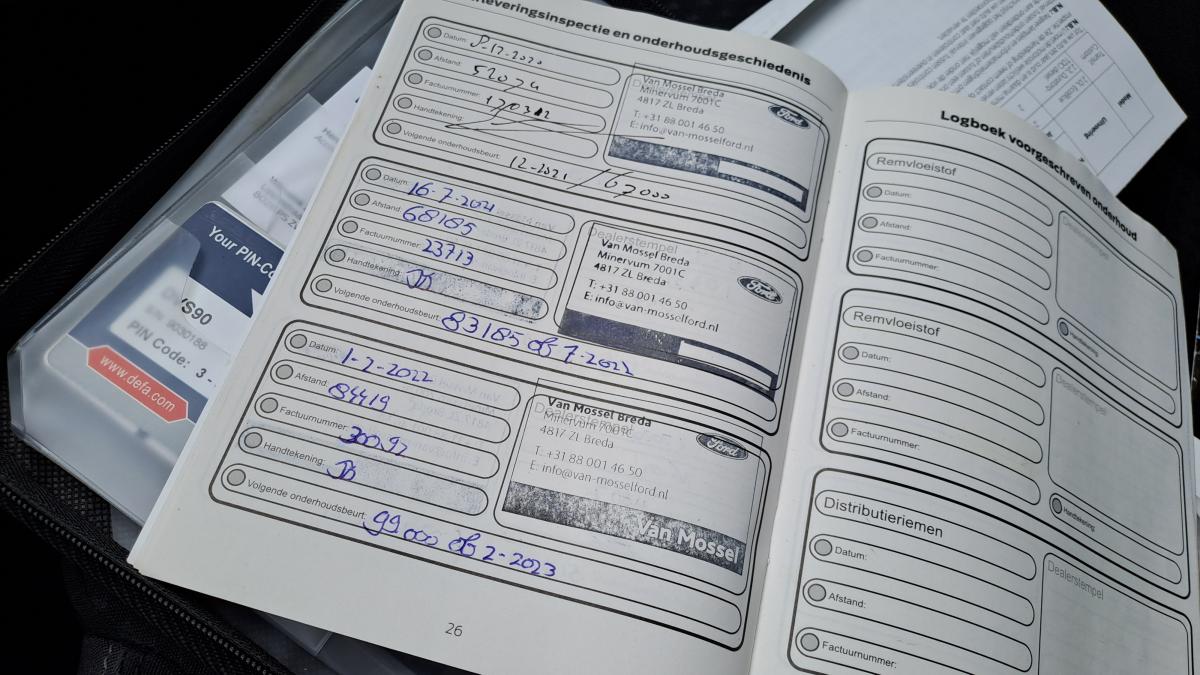 leveringsinspectie en onderhoudsgeschiedenis
Datum: 8-12-2020
Afstand: 52074
Factuurnummer:
Handtekening:
Volgende onderhoudsbeurt: 12-2021 / 67000
Van Mossel Breda
Minervum 7001C
4817 ZL Breda
T: +31 88 001 46 50
E: info@van-mosselford.nl
Ford
Datum: 16-7-2021
Afstand: 68185
Factuurnummer: 23713
Handtekening:
Volgende onderhoudsbeurt: 83185 of 7-2022
Dealerstempel
Van Mossel Breda
Minervum 7001C
4817 ZL Breda
T: +31 88 001 46 50
E: info@van-mosselford.nl
Ford
Datum: 1-2-2022
Afstand: 84419
Factuurnummer: 30092
Handtekening:
Volgende onderhoudsbeurt: 99000 of 2-2023
Dealerstempel
Van Mossel Breda
Minervum 7001C
4817 ZL Breda
T: +31 88 001 46 50
E: info@van-mosselford.nl
Ford
Van Mossel
26
Logboek voorgeschreven onderhoud
Remvloeistof
Datum:
Afstand:
Factuurnummer:
Dealerstempel
Handtekening:
Remvloeistof
Datum:
Afstand:
Factuurnummer:
Dealerstempel
Handtekening:
Distributieriemen
Datum:
Afstand:
Factuurnummer:
Dealerstempel
Your PIN-Co
VS90
PIN Code: 3 -
www.defa.com
Model
Uitvoering